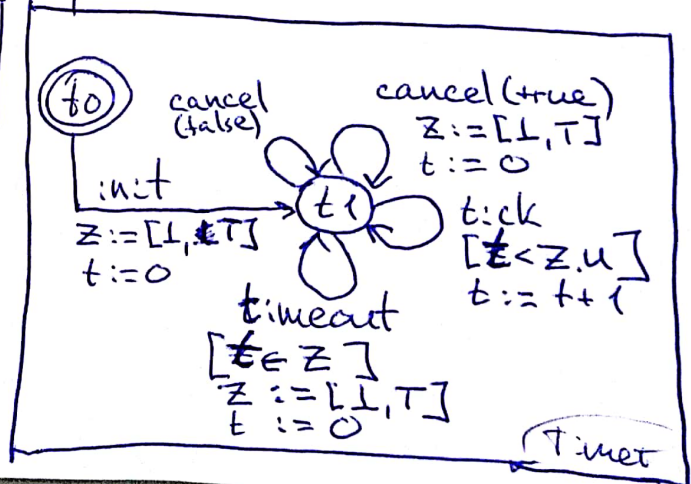 t0
cancel
(false)
cancel(true)
z:=[1,T]
t:=0
init
z:=[1,T]
t:=0
t1
tick
[t<z.u]
t:=t+1
timeout
[t∈z]
z:=[1,T]
t:=0
Timer